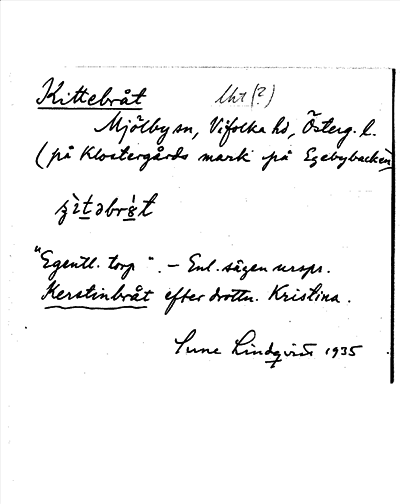 Kittebråt lht (?)
Mjölby sn, Vifolka hd, Österg. l.
(på Klostergårds mark på Egebybacken)
"Egentl. torp". – Enl. sägen urspr.
Kerstinbråt efter drottn. Kristina.
Sune Lindqvist 1935